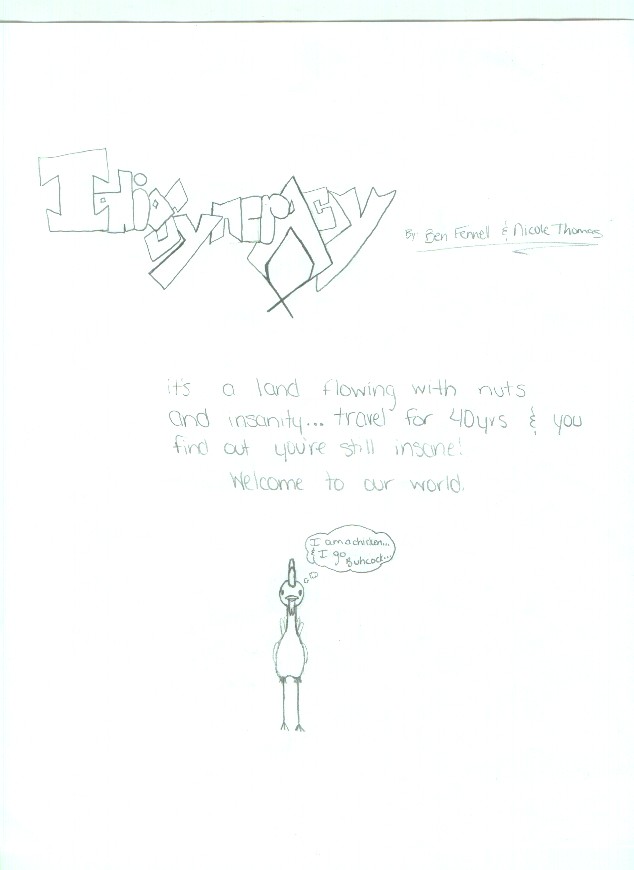 Idiosyncracy
By Ben Fennell & Nicole Thomas
it's a land flowing with nuts
and insanity... travel for 40yrs & you
find out you're still insane!
Welcome to our world.
I am a chicken...
& I go
Buhcock...